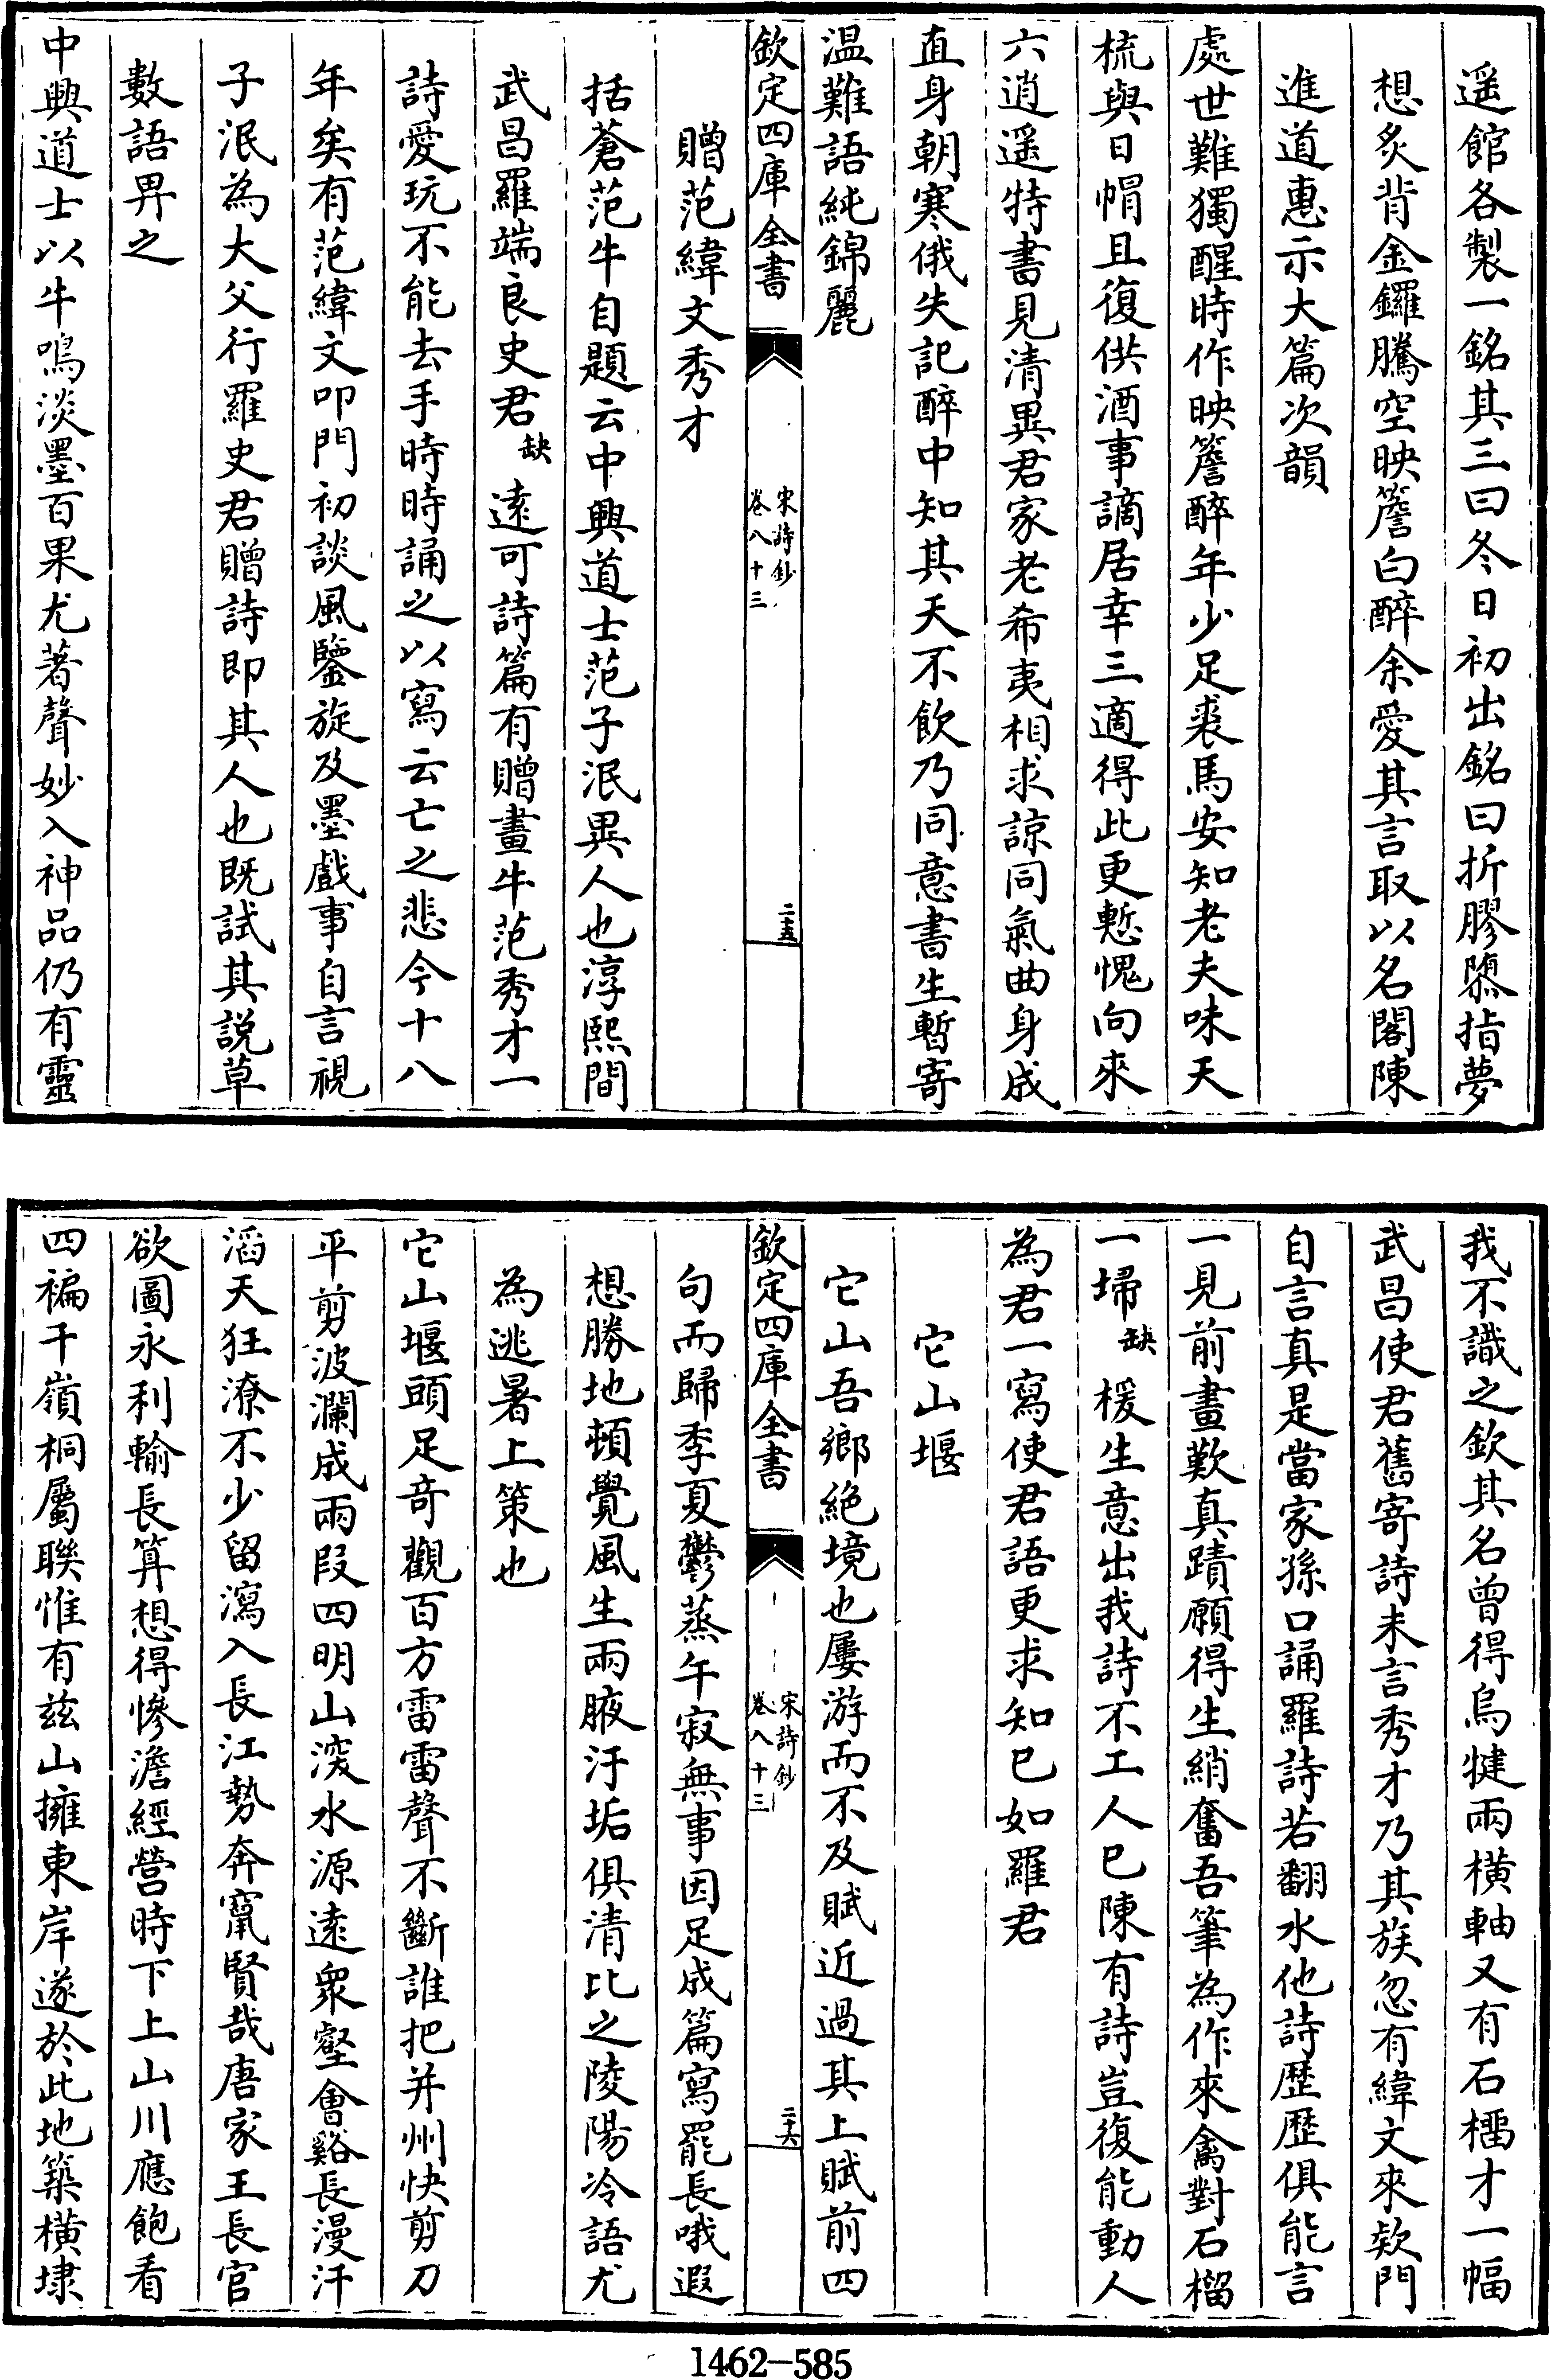 遥館各製一銘其三曰冬日初出銘曰折膠隳指夢
想炙背金鑼騰空映簷白醉余愛其言取以名閣陳
進道惠示大篇次韻
處世難獨醒時作映簷醉年少足裘馬安知老夫味天
梳與日帽且復供酒事謫居幸三適得此更慙愧向來
六逍遥特書見清異君家老希夷相求諒同氣曲身成
直身朝寒俄失記醉中知其天不飲乃同意書生暫寄
温難語純錦麗
欽定四庫全書
宋詩鈔
卷八十三
二十五
贈范緯文秀才
括蒼范牛自題云中興道士范子泯異人也淳熙間
武昌羅端良史君缺遠可詩篇有贈畫牛范秀才一
詩愛玩不能去手時時誦之以寫云亡之悲今十八
年矣有范緯文叩門初談風鑒旋及墨戲事自言視
子泯為大父行羅史君贈詩即其人也既試其説草
數語畀之
中興道士以牛鳴淡墨百果尤著聲妙入神品仍有靈
我不識之欽其名曾得烏犍兩横軸又有石橊才一幅
武昌使君舊寄詩未言秀才乃其族忽有緯文來欵門
自言真是當家孫口誦羅詩若翻水他詩歷歷俱能言
一見前畫歎真蹟願得生綃奮吾筆為作來禽對石榴
一埽缺楥生意出我詩不工人已陳有詩豈復能動人
為君一寫使君語更求知已如羅君
它山堰
它山吾鄉絶境也屢游而不及賦近過其上賦前四
欽定四庫全書
宋詩鈔
卷八十三
二十六
句而歸季夏鬱蒸午寂無事因足成篇寫罷長哦遐
想勝地頓覺風生兩腋汙垢俱清比之陵陽冷語尤
為逃暑上策也
它山堰頭足竒觀百方雷雷聲不斷誰把并州快剪刀
平剪波瀾成兩段四明山深水源遠衆壑會谿長漫汗
滔天狂潦不少留瀉入長江勢奔竄賢哉唐家王長官
欲圖永利輸長算想得慘澹經營時下上山川應飽看
四褊千嶺桐屬聯惟有兹山擁東岸遂於此地築横埭
1462-585